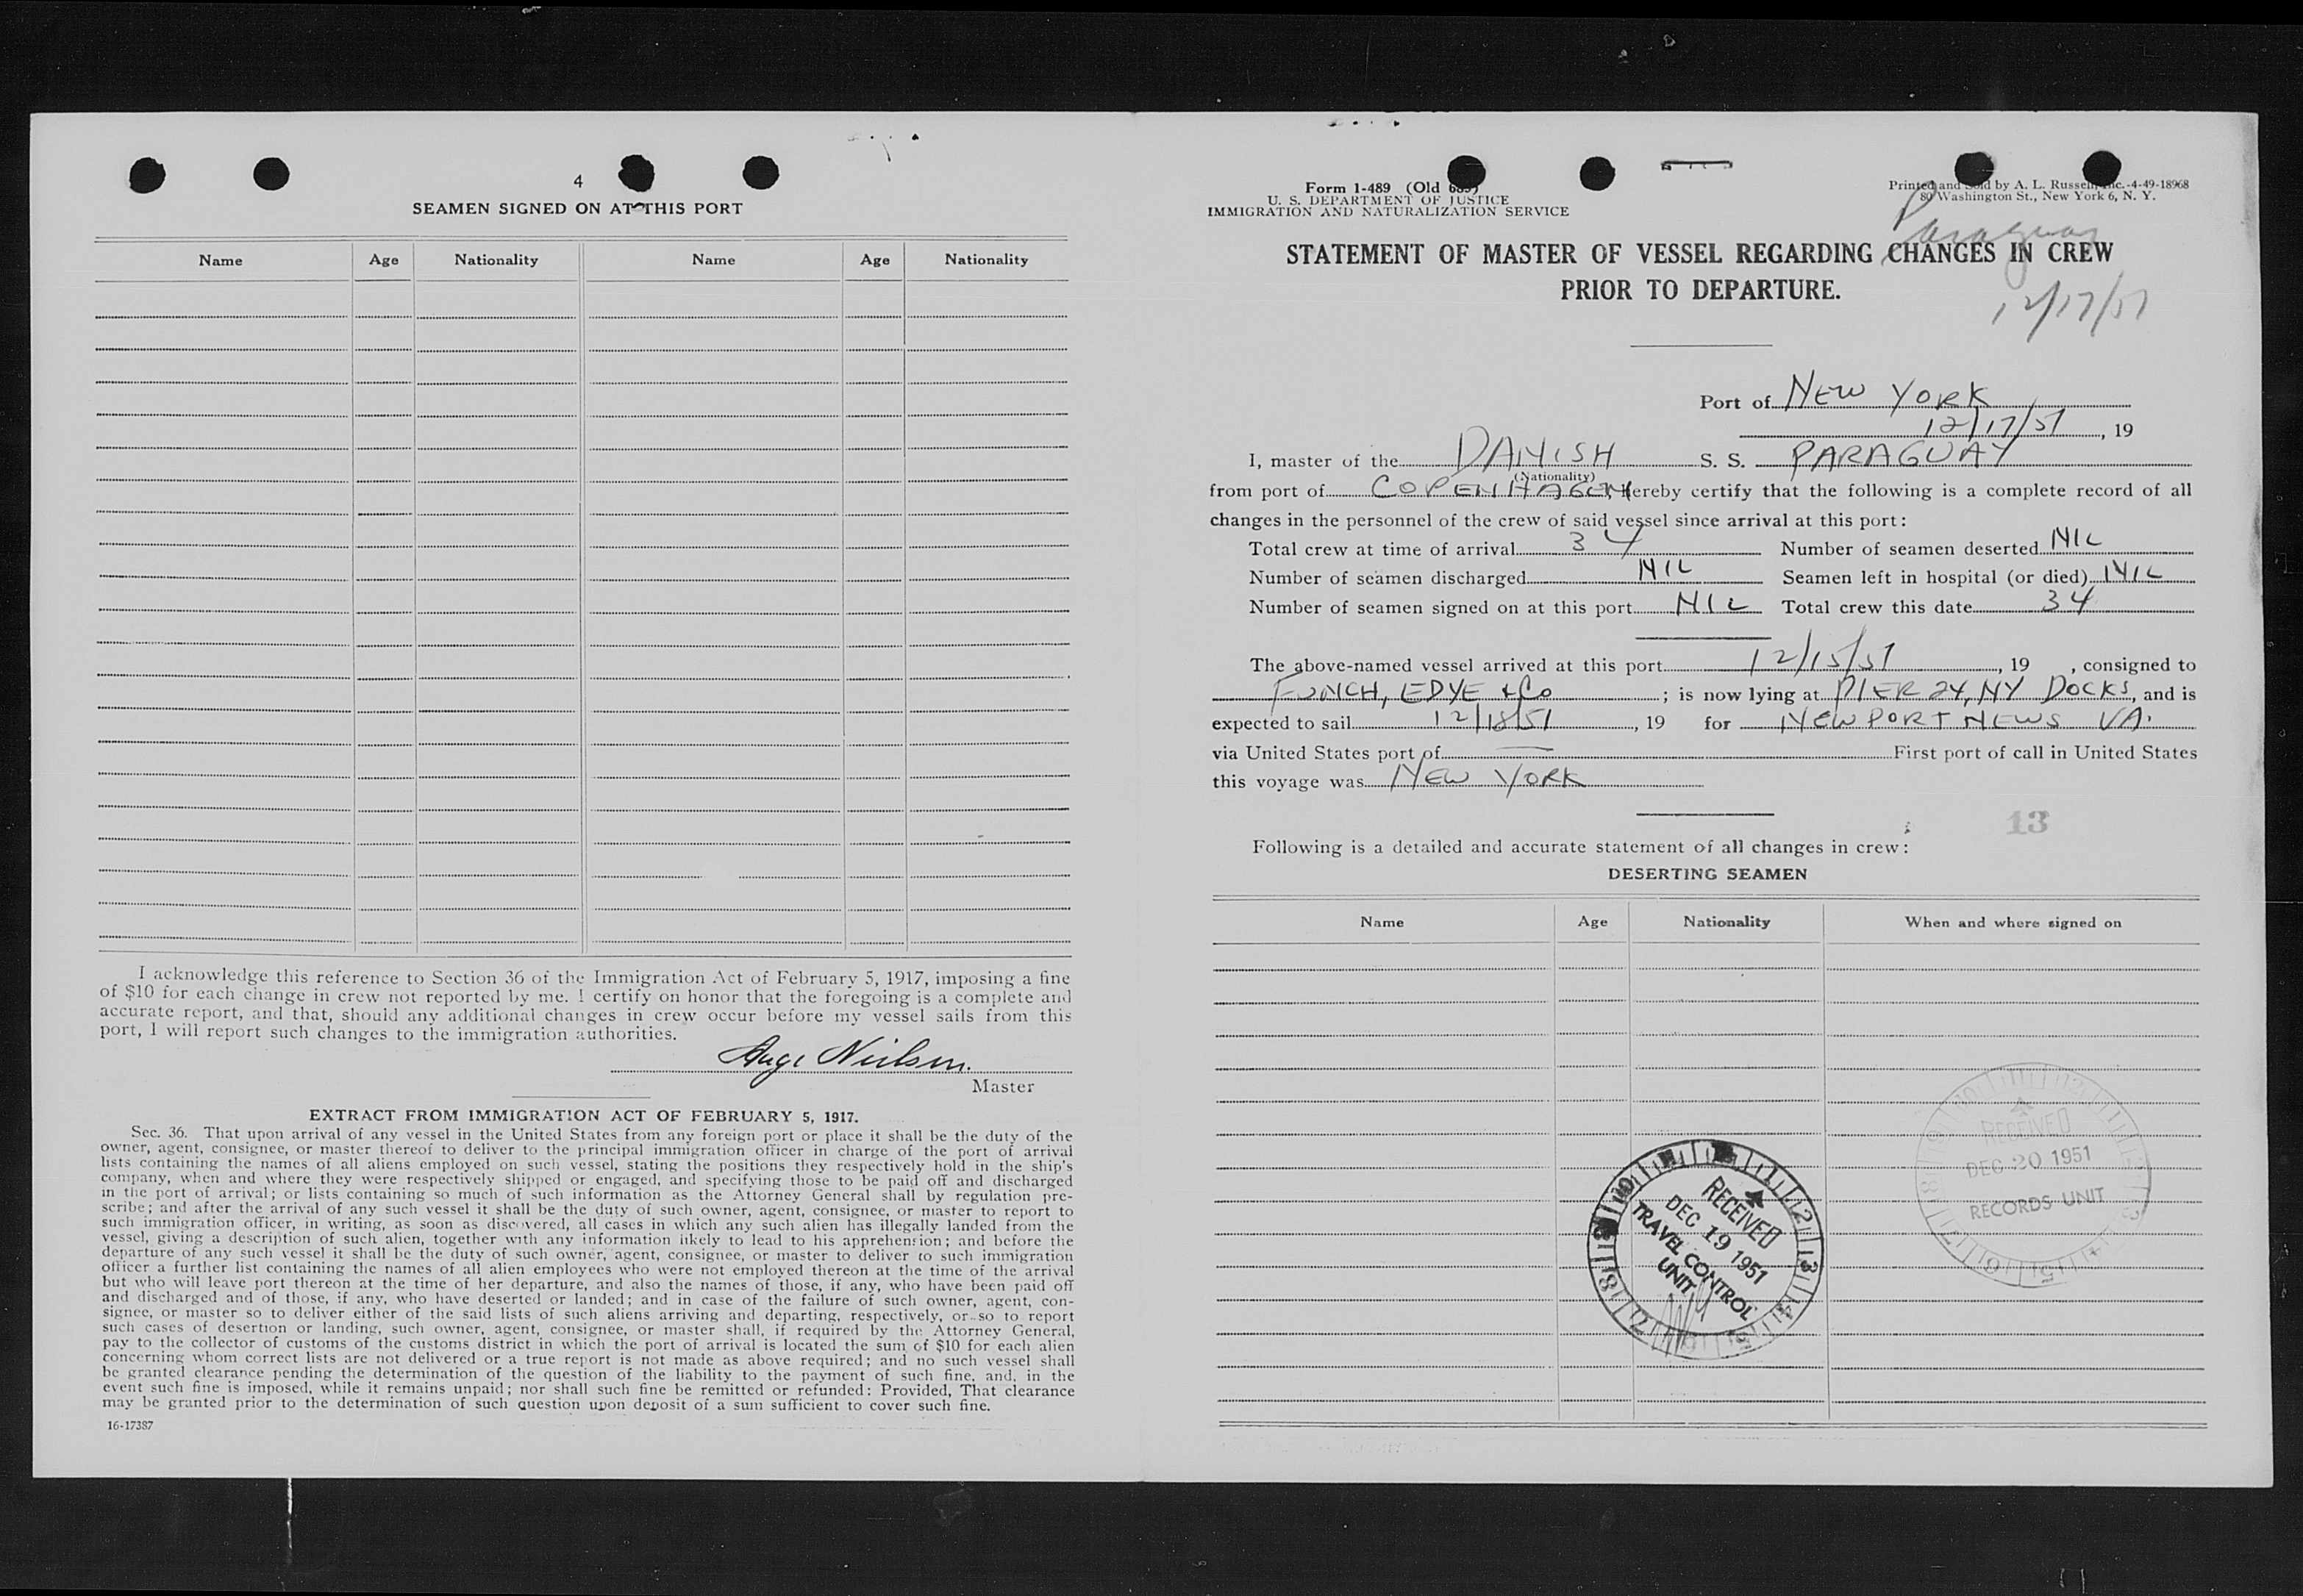 4
SEAMEN SIGNED ON AT THIS PORT
Name Age Nationality Name Age Nationality
I acknowledge this reference to Section 36 of the Immigration Act of February 5, 1917, imposing a fine
of $10 for each change in crew not reported by me. I certify on honor that the foregoing is a complete and
accurate report, and that, should any additional changes in crew occur before my vessel sails from this
port, I will report such changes to the immigration authorities.
Aage Nielsen.
Master
EXTRACT FROM IMMIGRATION ACT OF FEBRUARY 5, 1917.
Sec. 36. That upon arrival of any vessel in the United States from any foreign port or place it shall be the duty of the
owner, agent, consignee, or master thereof to deliver to the principal immigration officer in charge of the port of arrival
lists containing the names of all aliens employed on such vessel, stating the positions they respectively hold in the ship's
company, when and where they were respectively shipped or engaged, and specifying those to be paid off and discharged
in the port of arrival; or lists containing so much of such information as the Attorney General shall by regulation pre-
scribe; and after the arrival of any such vessel it shall be the duty of such owner, agent, consignee, or master to report to
such immigration officer, in writing, as soon as discovered, all cases in which any such alien has illegally landed from the
vessel, giving a description of such alien, together with any information likely to lead to his apprehension; and before the
departure of any such vessel it shall be the duty of such owner, agent, consignee, or master to deliver to such immigration
officer a further list containing the names of all alien employees who were not employed thereon at the time of the arrival
but who will leave port thereon at the time of her departure, and also the names of those, if any, who have been paid off
and discharged and of those, if any, who have deserted or landed; and in case of the failure of such owner, agent, con-
signee, or master so to deliver either of the said lists of such aliens arriving and departing, respectively, or so to report
such cases of desertion or landing, such owner, agent, consignee, or master shall, if required by the Attorney General,
pay to the collector of customs of the customs district in which the port of arrival is located the sum of $10 for each alien
concerning whom correct lists are not delivered or a true report is not made as above required; and no such vessel shall
be granted clearance pending the determination of the question of the liability to the payment of such fine, and, in the
event such fine is imposed, while it remains unpaid; nor shall such fine be remitted or refunded: Provided, That clearance
may be granted prior to the determination of such question upon deposit of a sum sufficient to cover such fine.
16-17387
Form 1-489 (Old 689)
U. S. DEPARTMENT OF JUSTICE
IMMIGRATION AND NATURALIZATION SERVICE
Printed and Sold by A. L. Russell, Inc.-4-49-18968
80 Washington St., New York 6, N. Y.
Paraguay
STATEMENT OF MASTER OF VESSEL REGARDING CHANGES IN CREW
PRIOR TO DEPARTURE.
12/17/51
Port of NEW YORK
12/17/51, 19
I, master of the DANISH S. S. PARAGUAY
(Nationality)
from port of COPENHAGEN, hereby certify that the following is a complete record of all
changes in the personnel of the crew of said vessel since arrival at this port:
Total crew at time of arrival 34 Number of seamen deserted NIL
Number of seamen discharged NIL Seamen left in hospital (or died) NIL
Number of seamen signed on at this port NIL Total crew this date 34
The above-named vessel arrived at this port 12/15/51, 19 , consigned to
FUNCH, EDYE & Co ; is now lying at PIER 24, NY DOCKS, and is
expected to sail 12/18/51, 19 for NEWPORT NEWS VA.
via United States port of — First port of call in United States
this voyage was NEW YORK
13
Following is a detailed and accurate statement of all changes in crew:
DESERTING SEAMEN
Name Age Nationality When and where signed on
RECEIVED
DEC 20 1951
RECORDS UNIT
RECEIVED
DEC 19 1951
TRAVEL CONTROL
UNIT